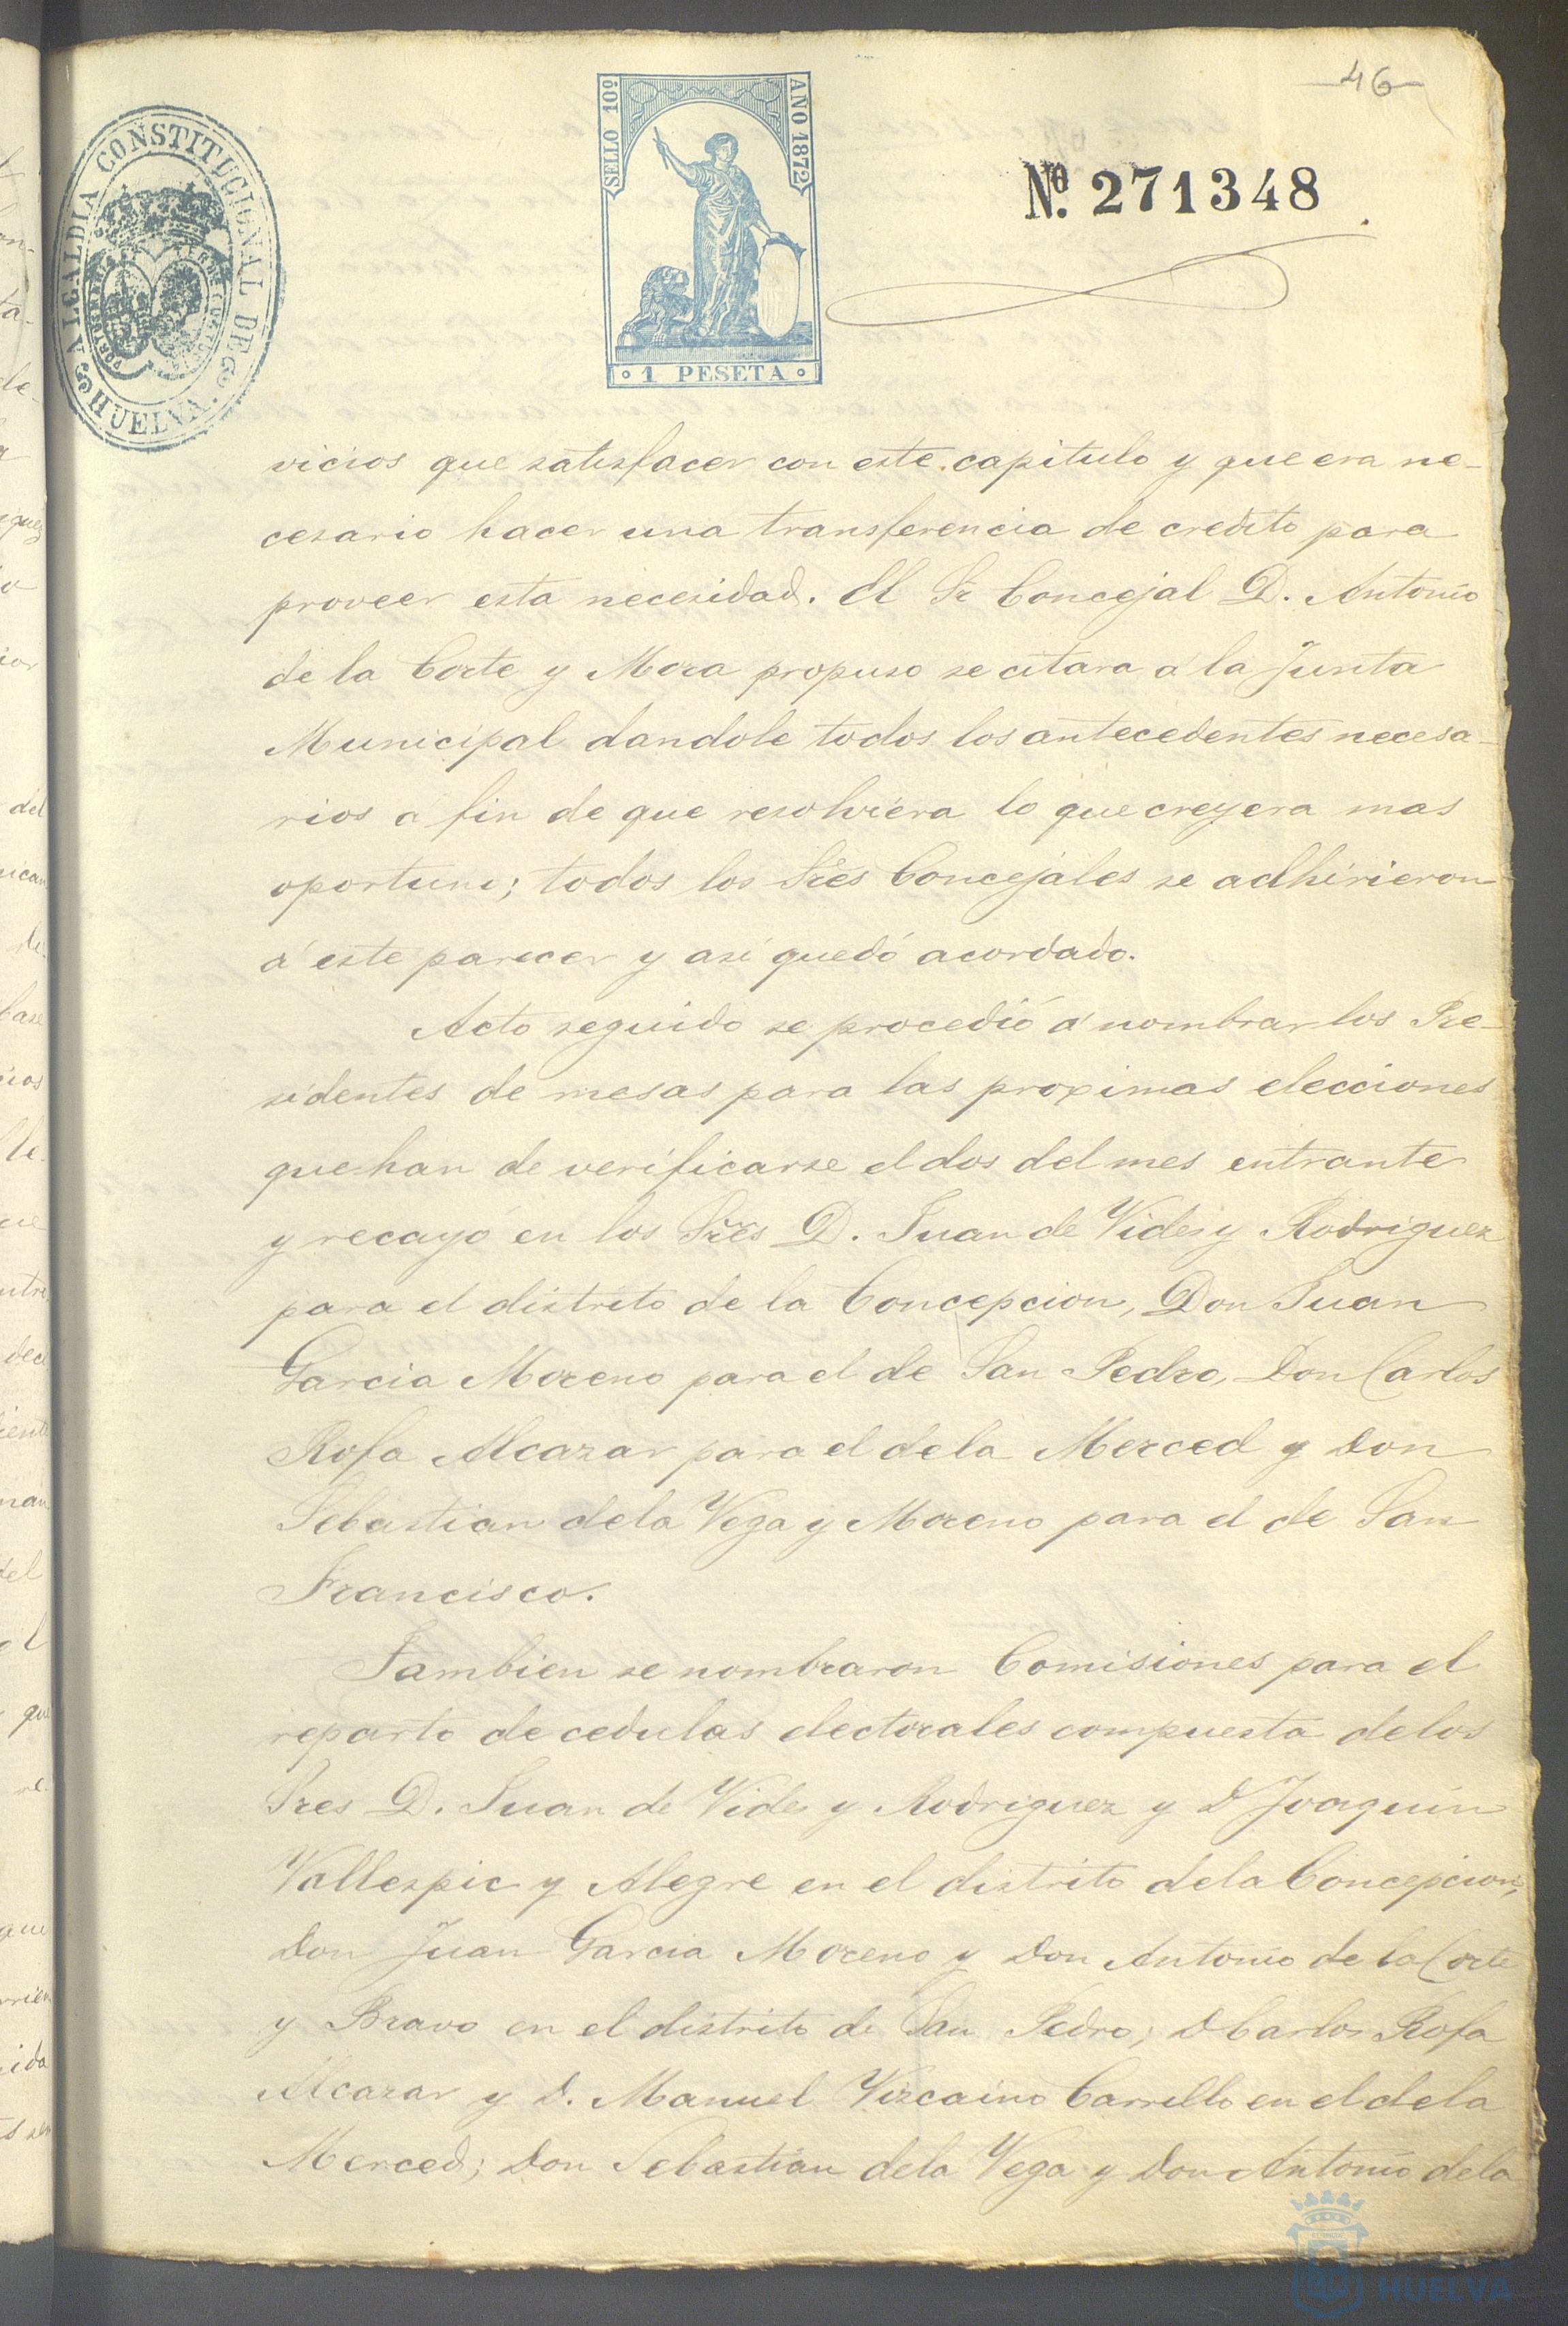 46
ALCALDIA CONSTITUCIONAL DE
HUELVA.
SELLO 10º
AÑO 1872
1 PESETA
Nº. 271348
vicios que satisfacer con este capitulo y que era ne-
cesario hacer una transferencia de credito para
proveer esta necesidad. El Sr Concejal D. Antonio
de la Corte y Mora propuso se citara á la Junta
Municipal dandole todos los antecedentes necesa-
rios á fin de que resolviera lo que creyera mas
oportuno; todos los Sres Concejales se adhirieron
á este parecer y asi quedó acordado.
Acto seguido se procedió á nombrar los Pre-
sidentes de mesas para las proximas elecciones
que han de verificarse el dos del mes entrante
y recayó en los Sres D. Juan de Vides y Rodriguez
para el distrito de la Concepcion, Don Juan
Garcia Moreno para el de San Pedro, Don Carlos
Rofa Alcazar para el de la Merced y Don
Sebastian de la Vega y Moreno para el de San
Francisco.
Tambien se nombraron Comisiones para el
reparto de cedulas electorales compuesta de los
Sres D. Juan de Vides y Rodriguez y D Joaquin
Vallespic y Alegre en el distrito de la Concepcion,
Don Juan Garcia Moreno y Don Antonio de la Corte
y Bravo en el distrito de San Pedro; D Carlos Rofa
Alcazar y D. Manuel Vizcaino Carrillo en el de la
Merced; Don Sebastian de la Vega y Don Antonio de la
HUELVA